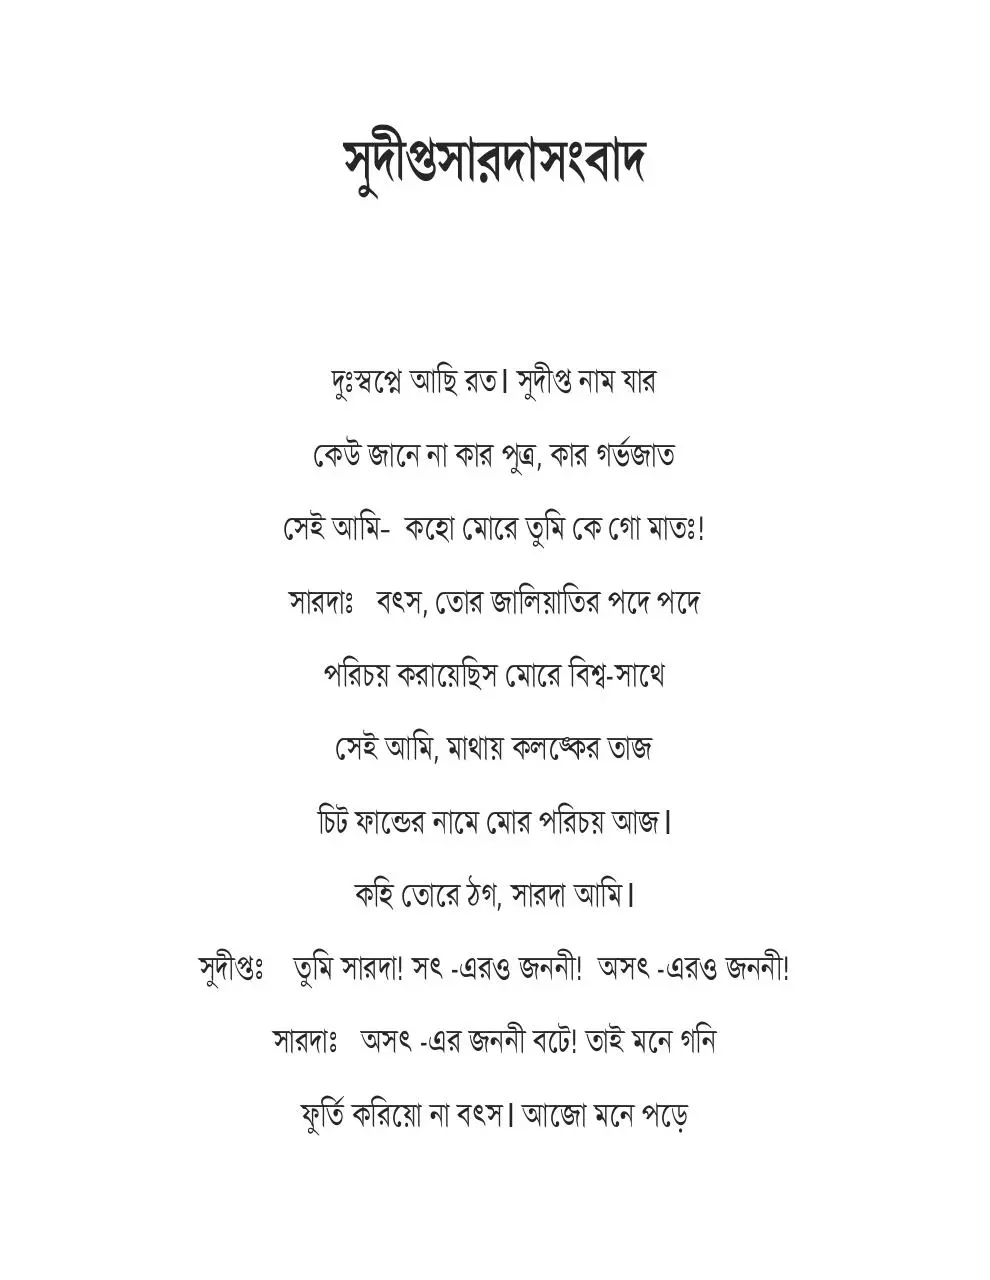 সুদীপ্তসারদাসংবাদ
দুঃস্বপ্নে আছি রত। সুদীপ্ত নাম যার
কেউ জানে না কার পুত্র, কার গর্ভজাত
সেই আমি– কহো মোরে তুমি কে গো মাতঃ!
সারদাঃ বৎস, তোর জালিয়াতির পদে পদে
পরিচয় করায়েছিস মোরে বিশ্ব-সাথে
সেই আমি, মাথায় কলঙ্কের তাজ
চিট ফান্ডের নামে মোর পরিচয় আজ।
কহি তোরে ঠগ, সারদা আমি।
সুদীপ্তঃ তুমি সারদা! সৎ -এরও জননী! অসৎ -এরও জননী!
সারদাঃ অসৎ -এর জননী বটে! তাই মনে গনি
ফুর্তি করিয়ো না বৎস। আজো মনে পড়ে